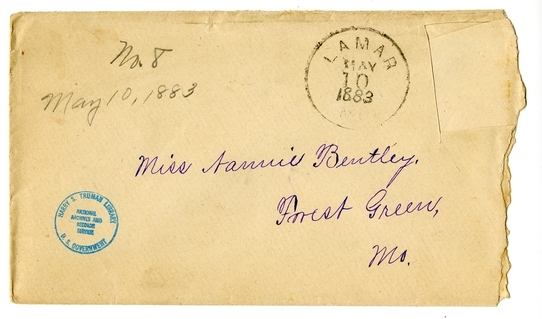 No. 8
May 10, 1883
LAMAR
MAY
10
1883
Miss Nannie Bentley,
Forest Green,
Mo.
HARRY S. TRUMAN LIBRARY
NATIONAL
ARCHIVES AND
RECORDS
SERVICE
U.S. GOVERNMENT